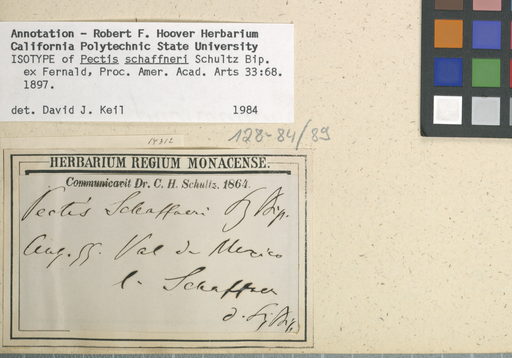 Annotation - Robert F. Hoover Herbarium
California Polytechnic State University
ISOTYPE of Pectis schaffneri Schultz Bip.
ex Fernald, Proc. Amer. Acad. Arts 33:68.
1897.
det. David J. Keil 1984
128-84/89
HERBARIUM REGIUM MONACENSE.
Communicavit Dr. C. H. Schultz. 1864.
Pectis Schaffneri Bip.
Aug. 55. Val de Mexico
l. Schaffner
d.